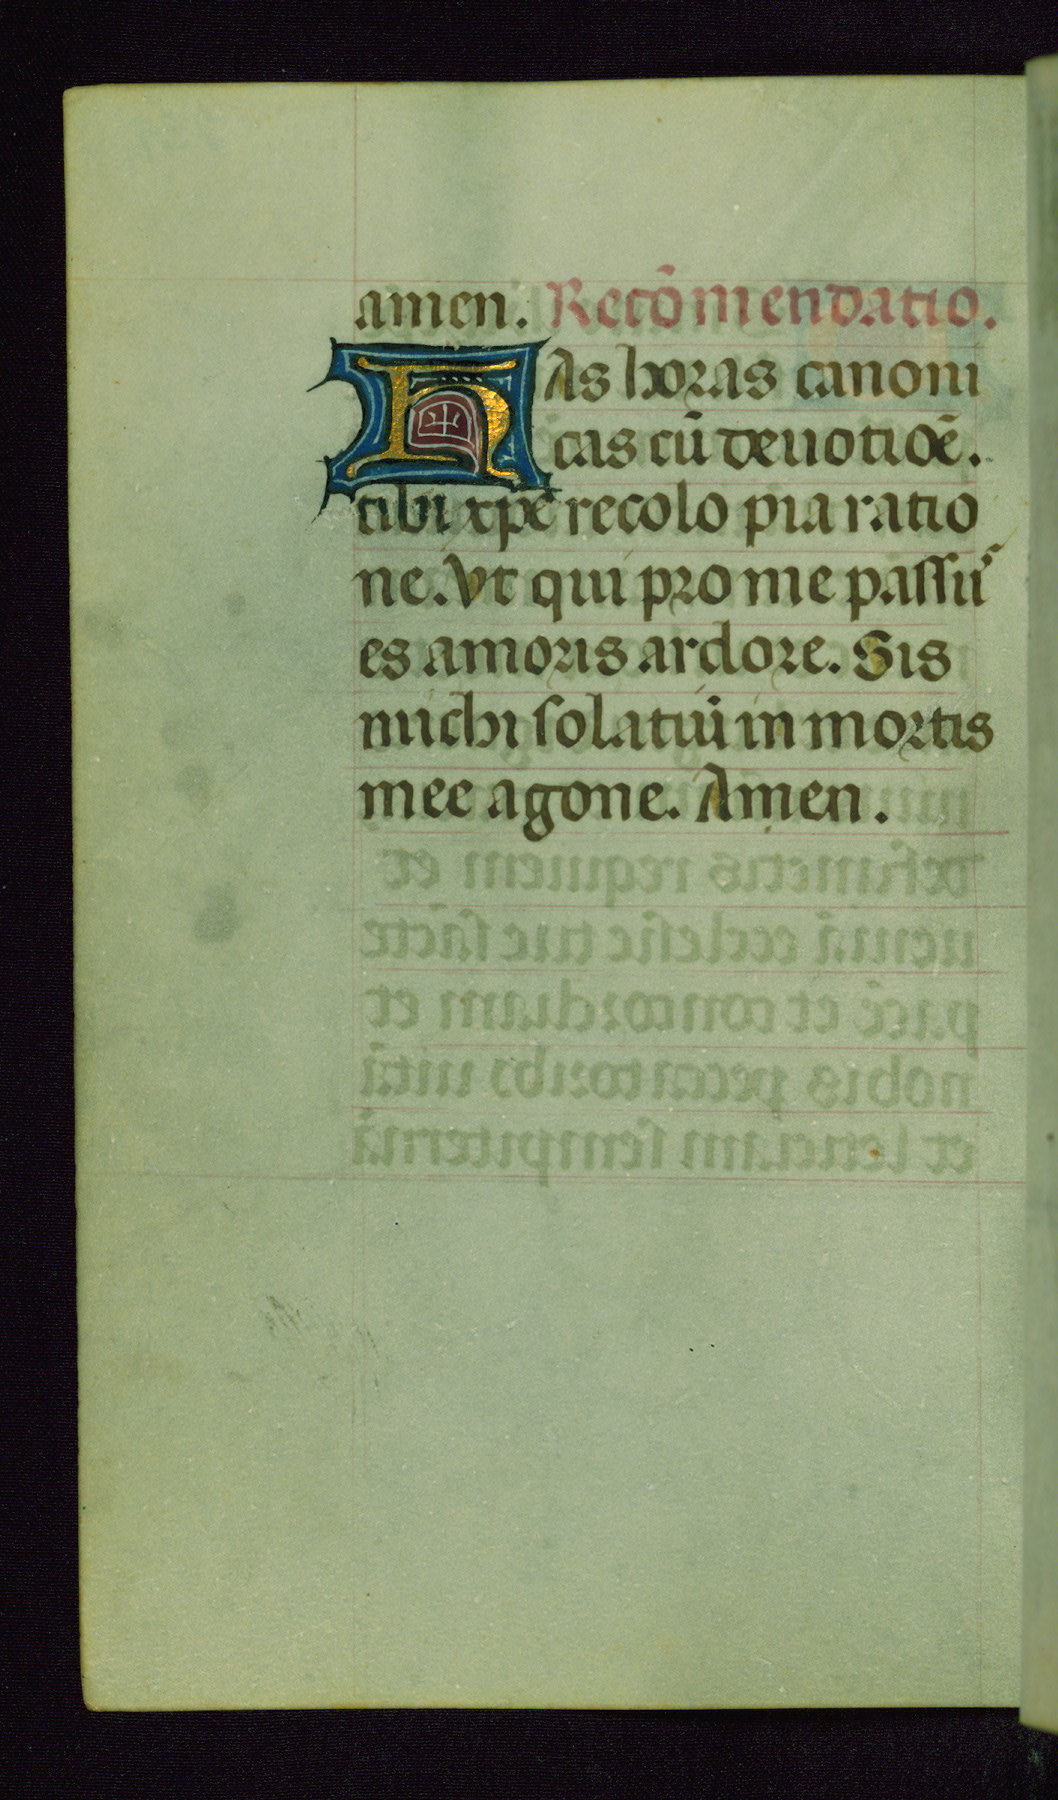 amen. Recōmendatio.
HAs horas canoni
cas cū deuotiōe.
tibi xpē recolo pia ratio
ne. Vt qui pro me passu᷒
es amoris ardore. Sis
michi solatiū in mortis
mee agone. Amen.